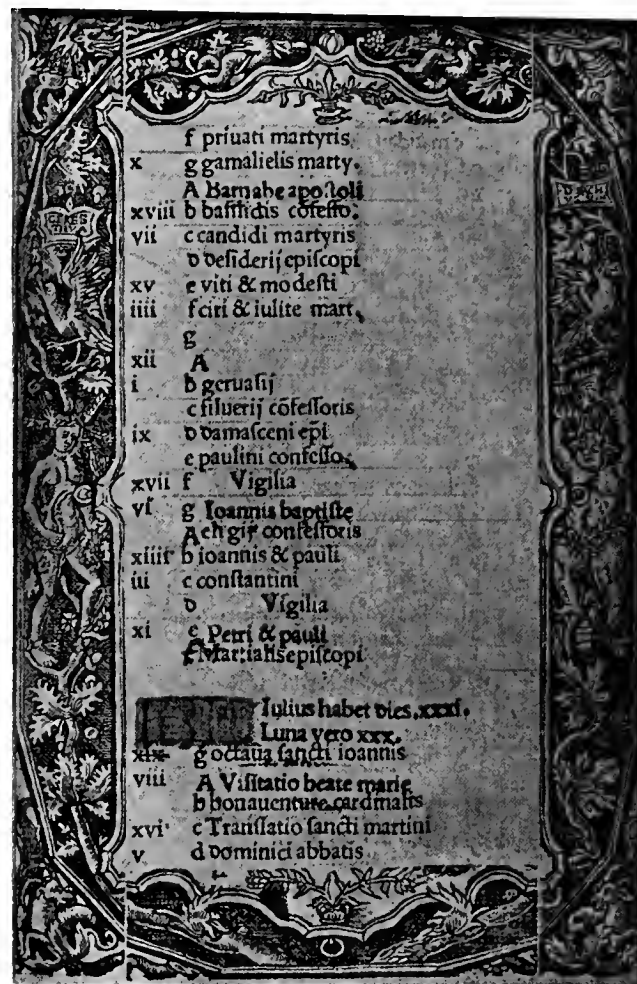 f priuati martyris
x g gamalielis marty.
A Barnabe apostoli
xviii b basilidis cōfesso.
vii c candidi martyris
d desiderij episcopi
xv e viti & modesti
iiii f citi & iulite mart.
g
xii A
i b geruasij
c siluerij cōfessoris
ix d damasceni ep̄i
e paulini confesso.
xvii f Vigilia
vi g Ioannis baptiste
A eligij confessoris
xiiii b ioannis & pauli
iii c constantini
d Vigilia
xi e Petri & pauli
f Martialis episcopi
Iulius habet dies .xxxi.
Luna vero xxx.
xix g octaua sancti ioannis
viii A Visitatio beate marię
b bonauenture cardinalis
xvi c Translatio sancti martini
v d dominici abbatis
CERES